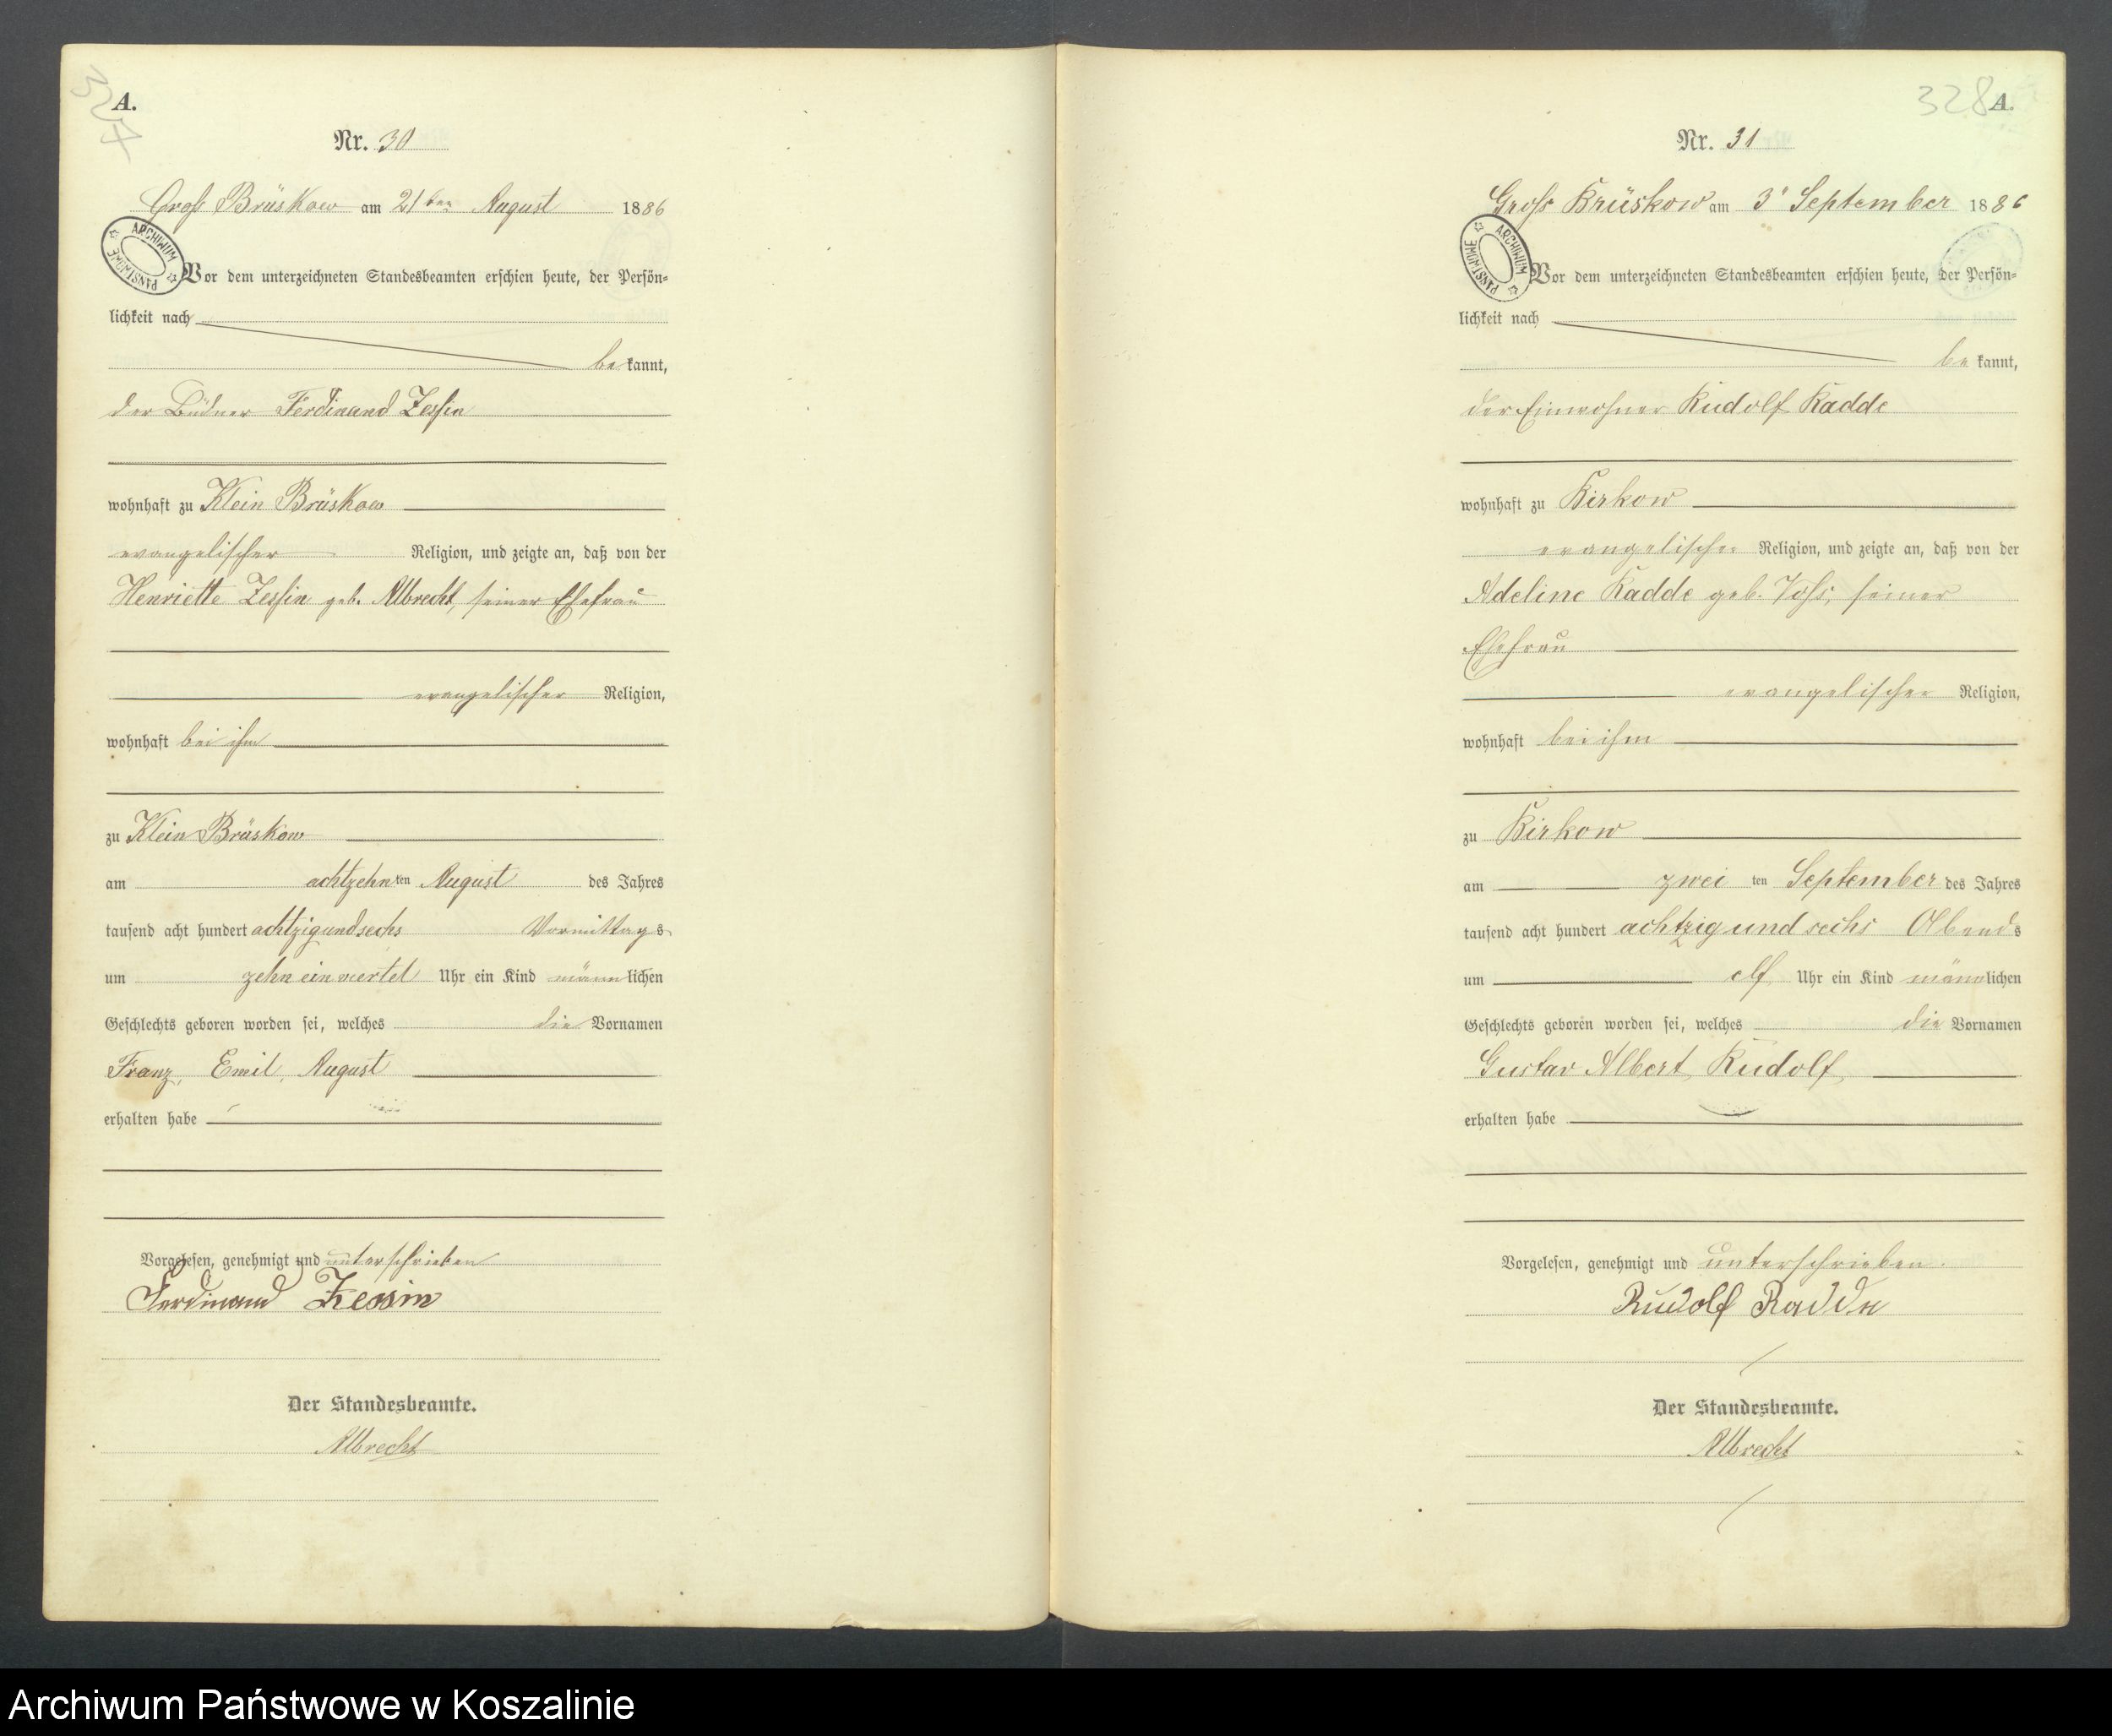 327
A.
Nr. 30
Groß Brüskow am 21ten August 1886
ARCHIWUM PAŃSTWOWE
Vor dem unterzeichneten Standesbeamten erschien heute, der Persön-
lichkeit nach
be kannt,
der Büdner Ferdinand Zessin
wohnhaft zu Klein Brüskow
evangelischer Religion, und zeigte an, daß von der
Henriette Zessin geb. Albrecht, seiner Ehefrau
evangelischer Religion,
wohnhaft bei ihm
zu Klein Brüskow
am achtzehn ten August des Jahres
tausend acht hundert achtzigundsechs Vormittags
um zehn ein viertel Uhr ein Kind männlichen
Geschlechts geboren worden sei, welches die Vornamen
Franz, Emil, August
erhalten habe
Vorgelesen, genehmigt und unterschrieben
Ferdinand Zessin
Der Standesbeamte.
Albrecht
328
A.
Nr. 31
Gross Brüskow am 3t September 1886
ARCHIWUM PAŃSTWOWE
Vor dem unterzeichneten Standesbeamten erschien heute, der Persön-
lichkeit nach
be kannt,
der Einwohner Rudolf Radde
wohnhaft zu Birkow
evangelischer Religion, und zeigte an, daß von der
Adeline Radde geb. Vohs, seiner
Ehefrau
evangelischer Religion,
wohnhaft bei ihm
zu Birkow
am zwei ten September des Jahres
tausend acht hundert achtzig und sechs Abends
um elf Uhr ein Kind männlichen
Geschlechts geboren worden sei, welches die Vornamen
Gustav Albert Rudolf
erhalten habe
Vorgelesen, genehmigt und unterschrieben.
Rudolf Radde
Der Standesbeamte.
Albrecht
Archiwum Państwowe w Koszalinie